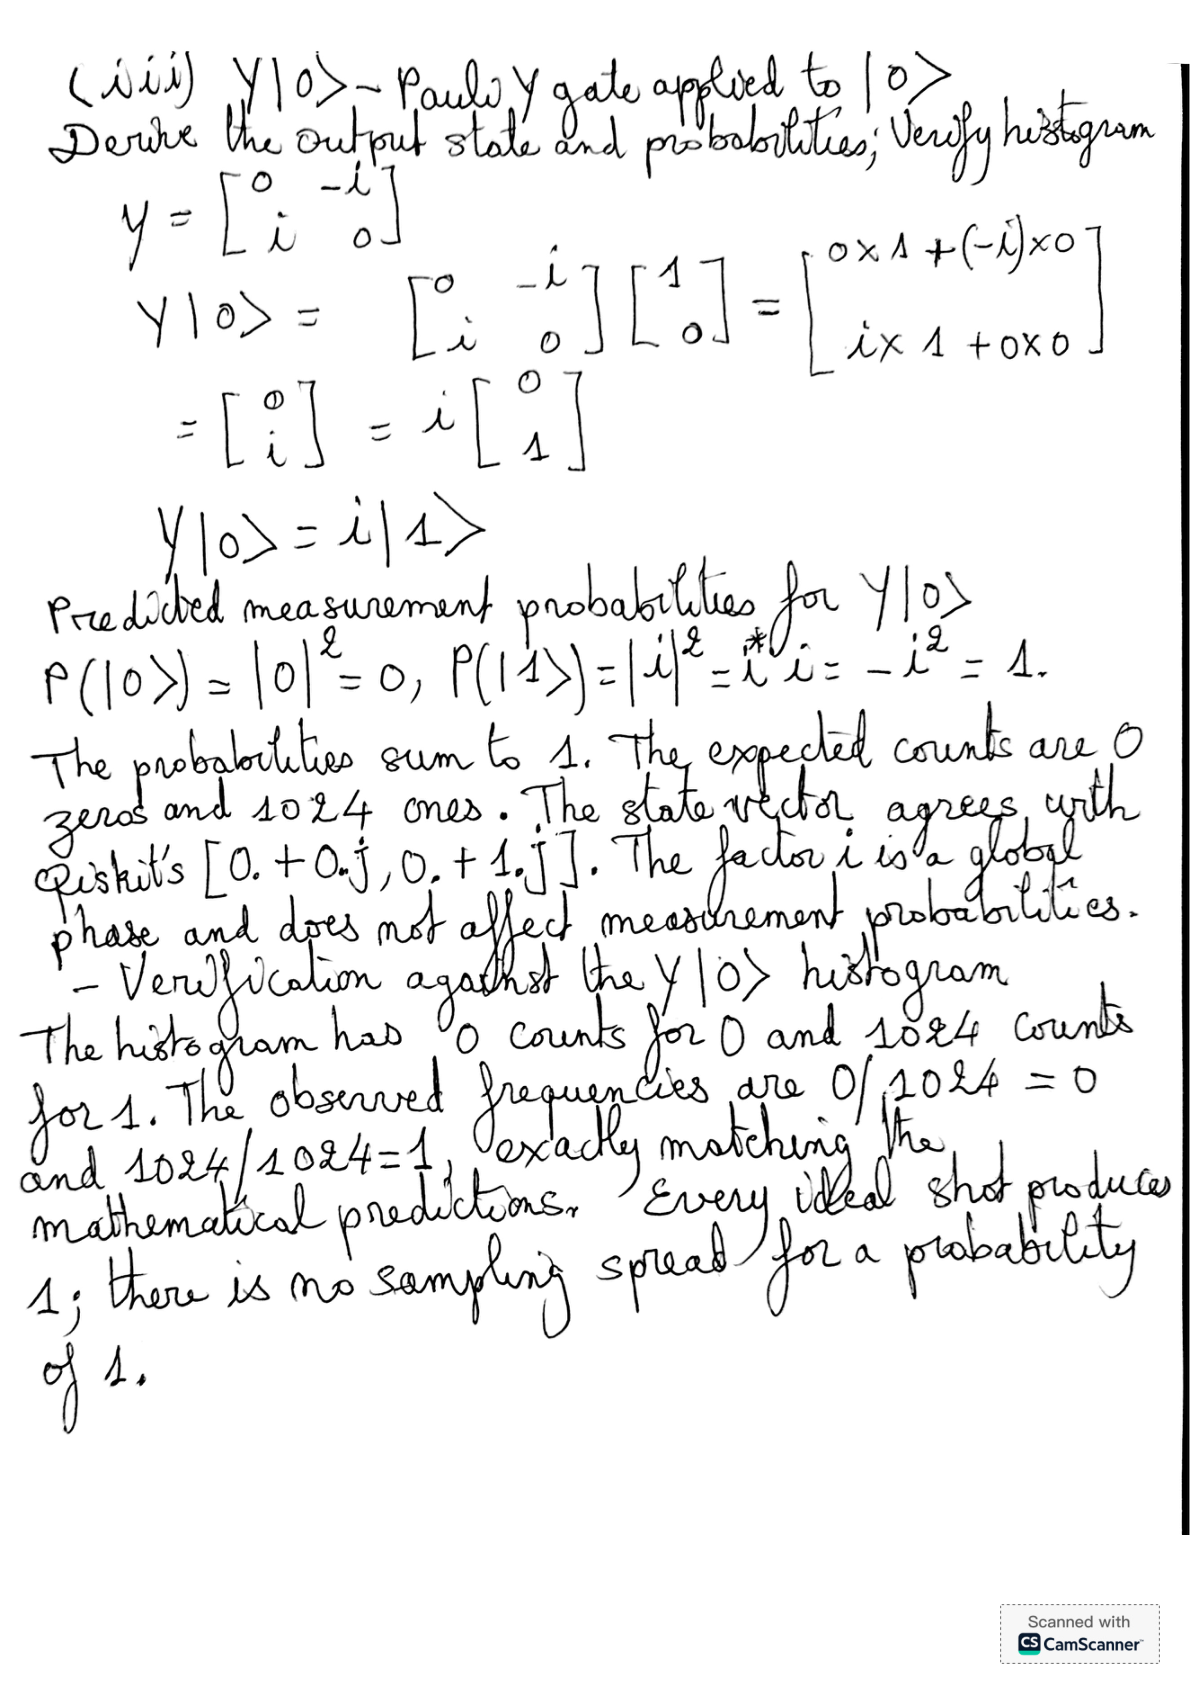 (iii) Y|0> - Pauli Y gate applied to |0>
Derive the output state and probabilities; Verify histogram
Y = [0 -i
i 0]
Y|0> = [0 -i
i 0] [1
0] = [0×1 + (-i)×0
i×1 + 0×0]
= [0
i] = i [0
1]
Y|0> = i|1>
Predicted measurement probabilities for Y|0>
P(|0>) = |0|² = 0, P(|1>) = |i|² = i* i = -i² = 1.
The probabilities sum to 1. The expected counts are 0
zeros and 1024 ones. The state vector agrees with
Qiskit's [0.+0.j, 0.+1.j]. The factor i is a global
phase and does not affect measurement probabilities.
- Verification against the Y|0> histogram
The histogram has 0 counts for 0 and 1024 counts
for 1. The observed frequencies are 0/1024 = 0
and 1024/1024=1, exactly matching the
mathematical predictions. Every ideal shot produces
1; there is no sampling spread for a probability
of 1.
Scanned with
CS CamScanner